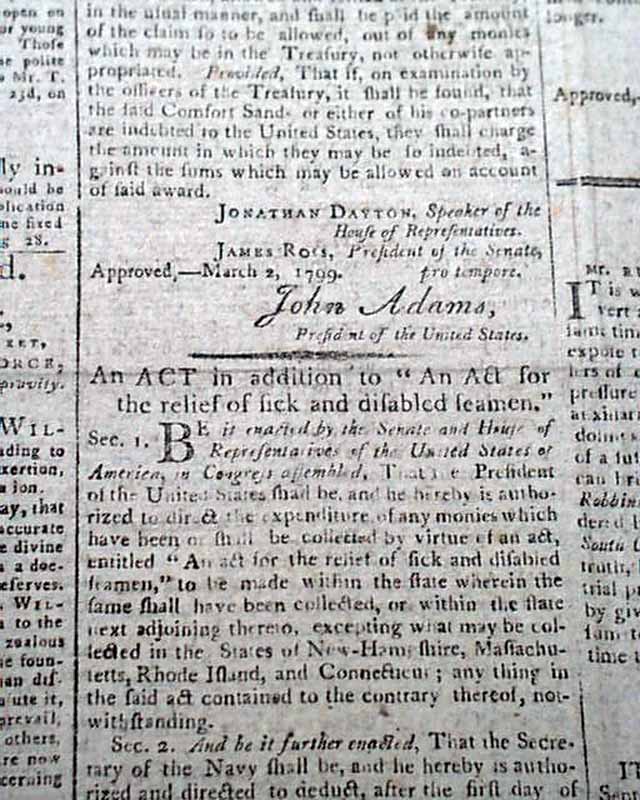 open on
or young
Those
he polite
Mr. T.
23d, on
ly in-
ould be
plication
me fixed
g 28.
d.
KET,
ORCE,
pravity.
WIL-
ading to
exertion,
ay, that
accurate
e divine
a doc-
eserves.
WIL-
to the
zealous
e foun-
an dif.
ute it,
prevail,
others,
are now
cerning
in the uſual manner, and ſhall be paid the amount
of the claim ſo to be allowed, out of any monies
which may be in the Treaſury, not otherwiſe ap-
propriated. Provided, That if, on examination by
the officers of the Treaſury, it ſhall be found, that
the ſaid Comfort Sands or either of his co-partners
are indebted to the United States, they ſhall charge
the amount in which they may be ſo indebted, a-
gainſt the ſums which may be allowed on account
of ſaid award.
JONATHAN DAYTON, Speaker of the
Houſe of Repreſentatives.
JAMES ROSS, Preſident of the Senate,
Approved,—March 2, 1799. pro tempore.
John Adams,
Preſident of the United States.
An ACT in addition to "An Act for
the relief of ſick and diſabled ſeamen."
Sec. 1. BE it enacted by the Senate and Houſe of
Repreſentatives of the United States of
America, in Congreſs aſſembled, That the Preſident
of the United States ſhall be, and he hereby is autho-
rized to direct the expenditure of any monies which
have been or ſhall be collected by virtue of an act,
entitled "An act for the relief of ſick and diſabled
ſeamen," to be made within the ſtate wherein the
ſame ſhall have been collected, or within the ſtate
next adjoining thereto, excepting what may be col-
lected in the States of New-Hampſhire, Maſſachu-
ſetts, Rhode Iſland, and Connecticut; any thing in
the ſaid act contained to the contrary thereof, not-
withſtanding.
Sec. 2. And be it further enacted, That the Secre-
tary of the Navy ſhall be, and he hereby is autho-
rized and directed to deduct, after the firſt day of
longer.
Approved,
MR.
IT is
vert a
ſame tim
expoſe t
lers of
preſſure
at
of a fut
can bri
Robbins
dered
South C
truth,
trial pr
by giv
time
IT
Sept